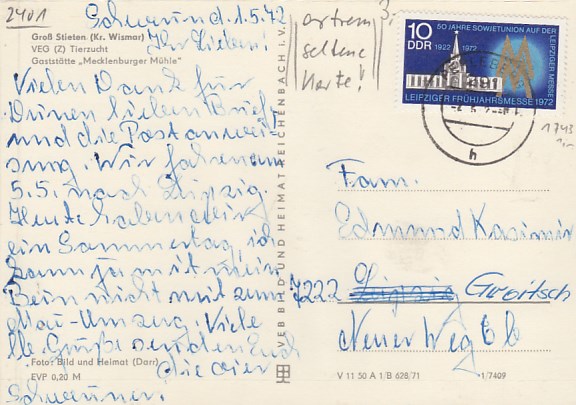 2401
Schwaund. 1.5.72
Groß Stieten (Kr. Wismar)
VEG (Z) Tierzucht
Gaststätte „Mecklenburger Mühle"
Ihr Lieben!
Vielen Dank für
Deinen lieben Brief
und die Postanwei-
sung. Wir fahren am
5.5. nach Leipzig.
Heute haben wir
ein Sonnentag, ich
kann ja mit mein
Bein nicht mit zum
Mai-Umzug. Viele
Grüße senden Euch
die vier
Foto: Bild und Heimat (Darr)
EVP 0,20 M
VEB BILD UND HEIMAT REICHENBACH i. V.
extrem
seltene
Karte!
10
DDR
1922 1972
50 JAHRE SOWJETUNION AUF DER
LEIPZIGER MESSE
LEIPZIGER FRÜHJAHRSMESSE 1972
h
1743
Fam.
Edmund Kasimir
7222 Leipzig
Neuer Weg 6b
V 11 50 A 1/B 628/71
1/7409